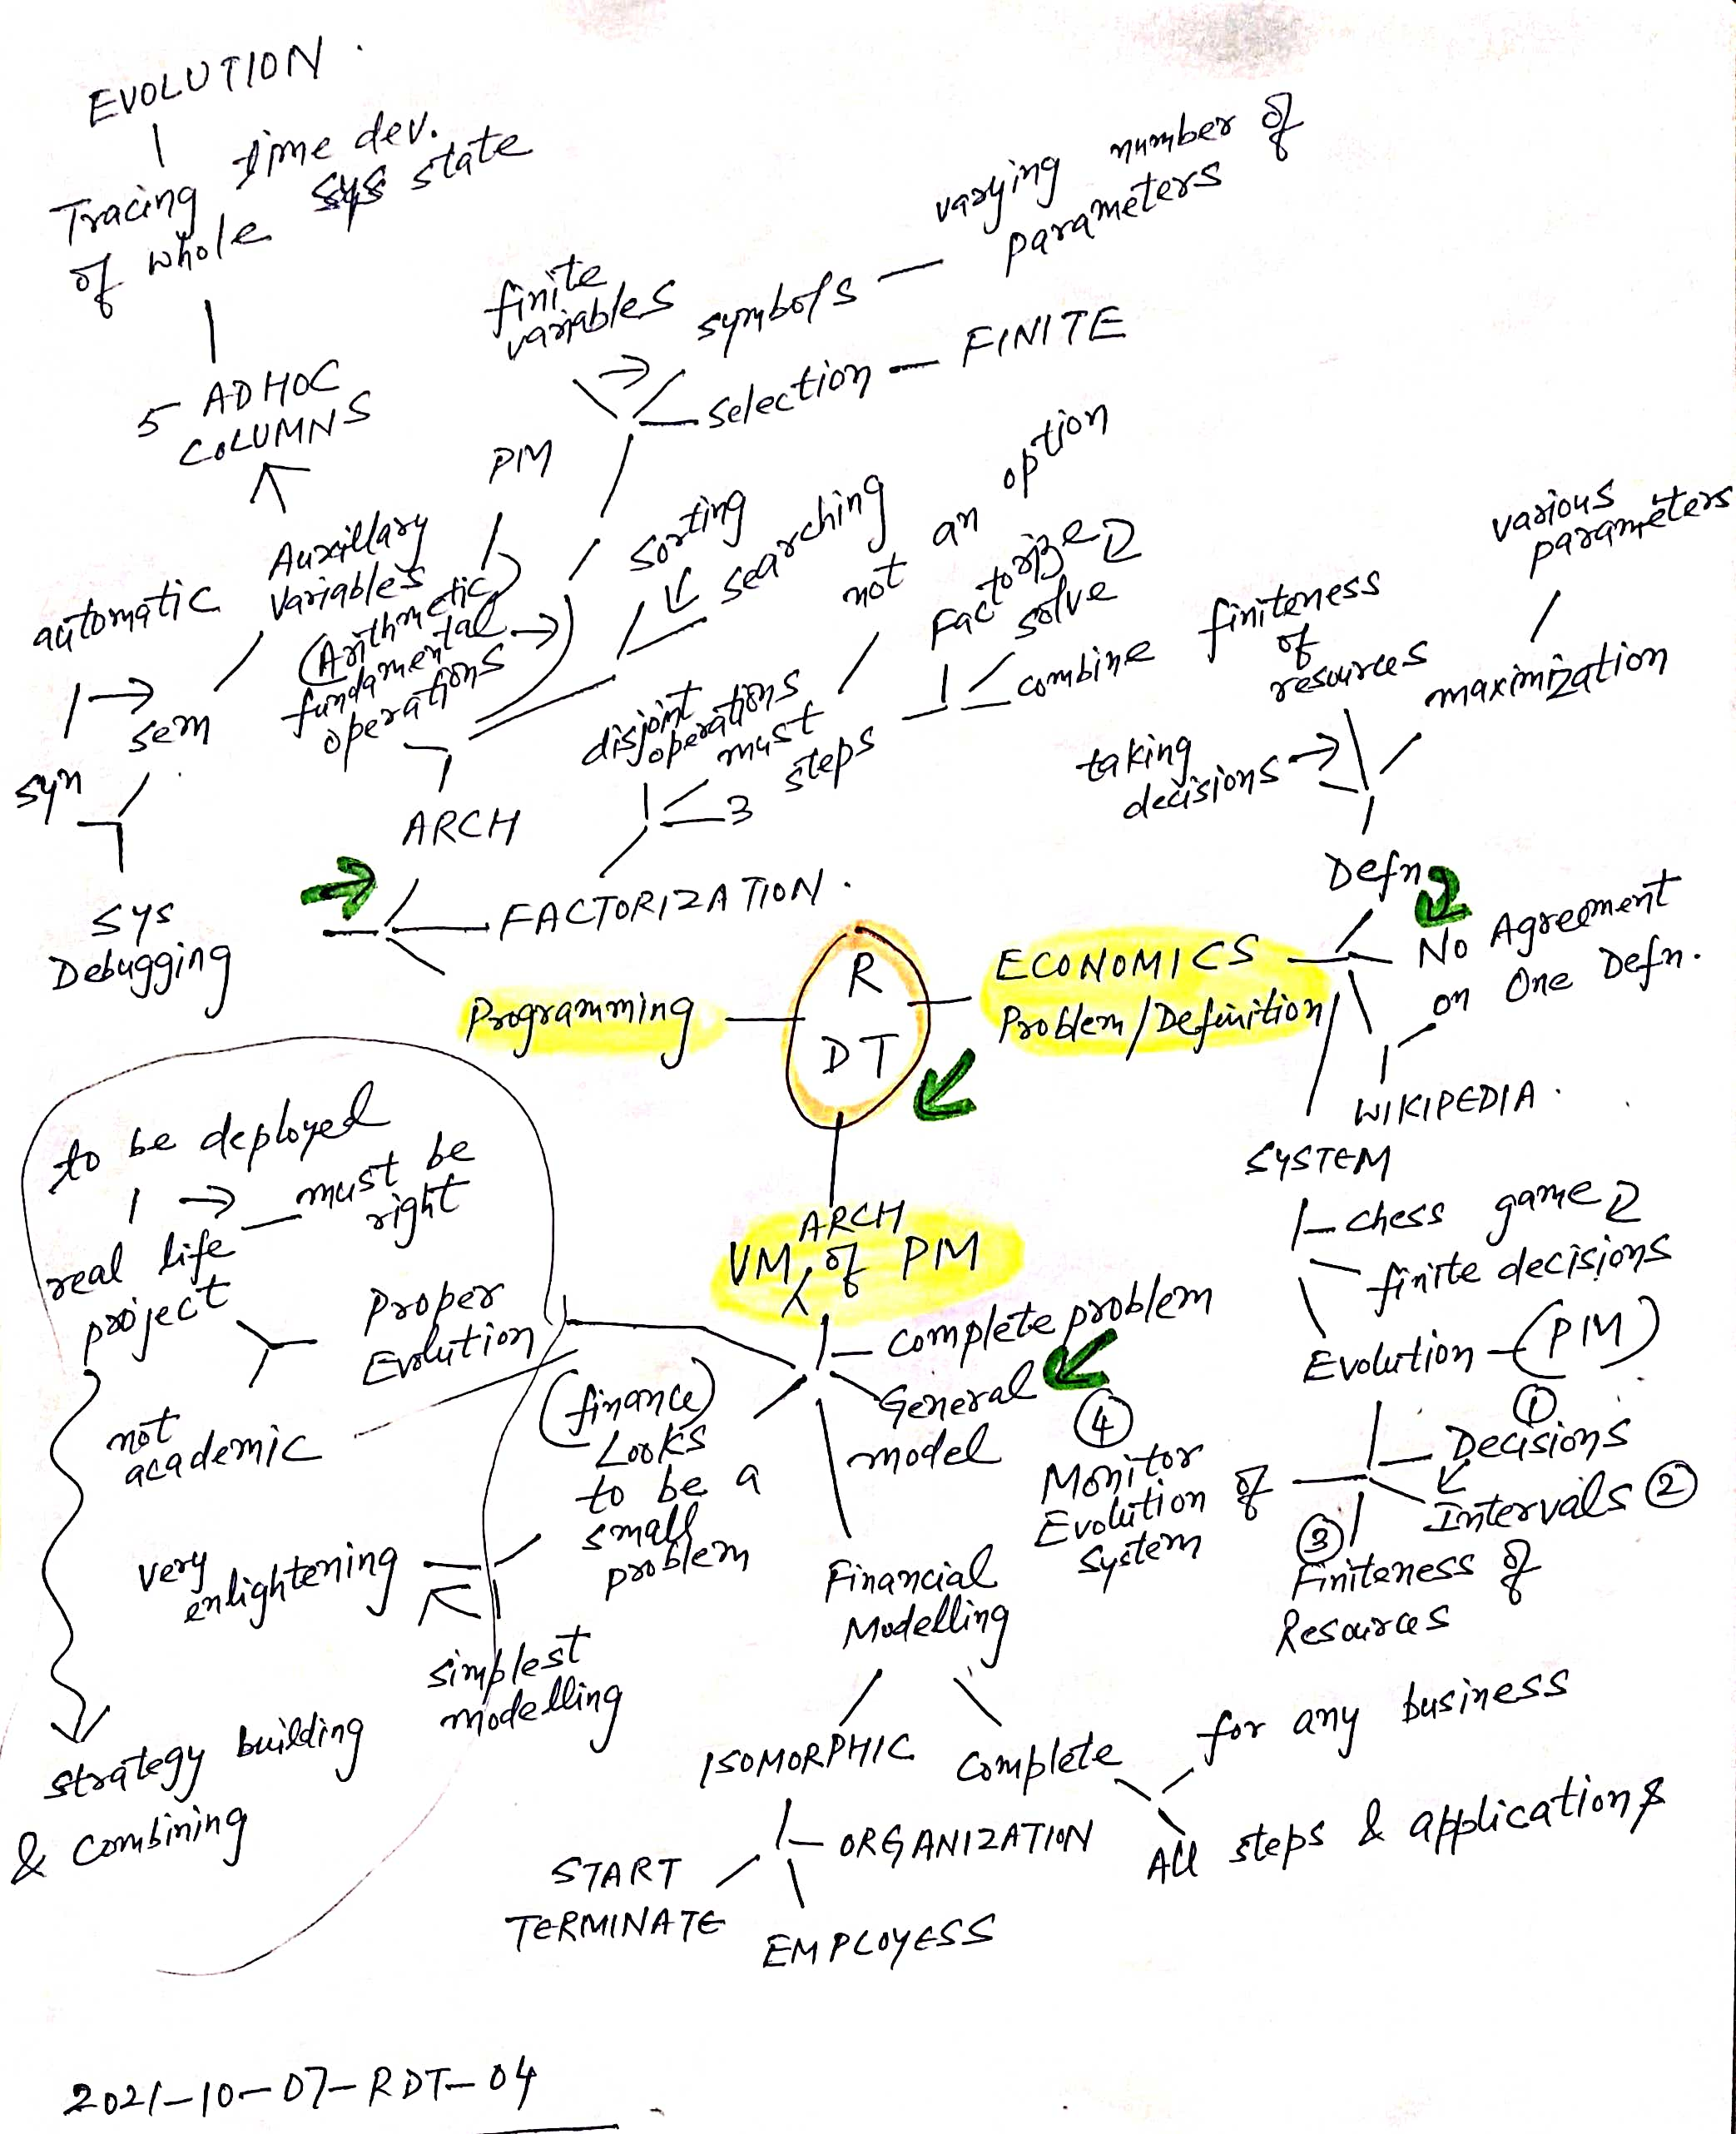 EVOLUTION.
Tracing time dev.
of whole sys state
5 ADHOC
COLUMNS
finite
variables
symbols
varying number of
parameters
selection
FINITE
PM
automatic
Auxillary
variables
(Arithmetic)
fundamental
operations
sorting
searching
not an option
syn
sem
ARCH
disjoint
operations
must
3 steps
Factorize
solve
combine
finiteness
of
resources
various
parameters
maximization
taking
decisions
Defn
No Agreement
on One Defn.
WIKIPEDIA.
SYS
Debugging
FACTORIZATION.
Programming
R
DT
ECONOMICS
Problem/Definition
SYSTEM
chess game
finite decisions
Evolution (PM)
① Decisions
Intervals ②
③
Finiteness of
Resources
④
Monitor
Evolution of
System
to be deployed
must be
right
real life
project
Proper
Evolution
not
academic
ARCH
VM of PM
complete problem
General
model
(finance)
Looks
to be a
small
problem
very
enlightening
simplest
modelling
strategy building
& combining
Financial
Modelling
ISOMORPHIC
complete
for any business
All steps & applications
ORGANIZATION
START
TERMINATE
EMPLOYESS
2021-10-07-RDT-04